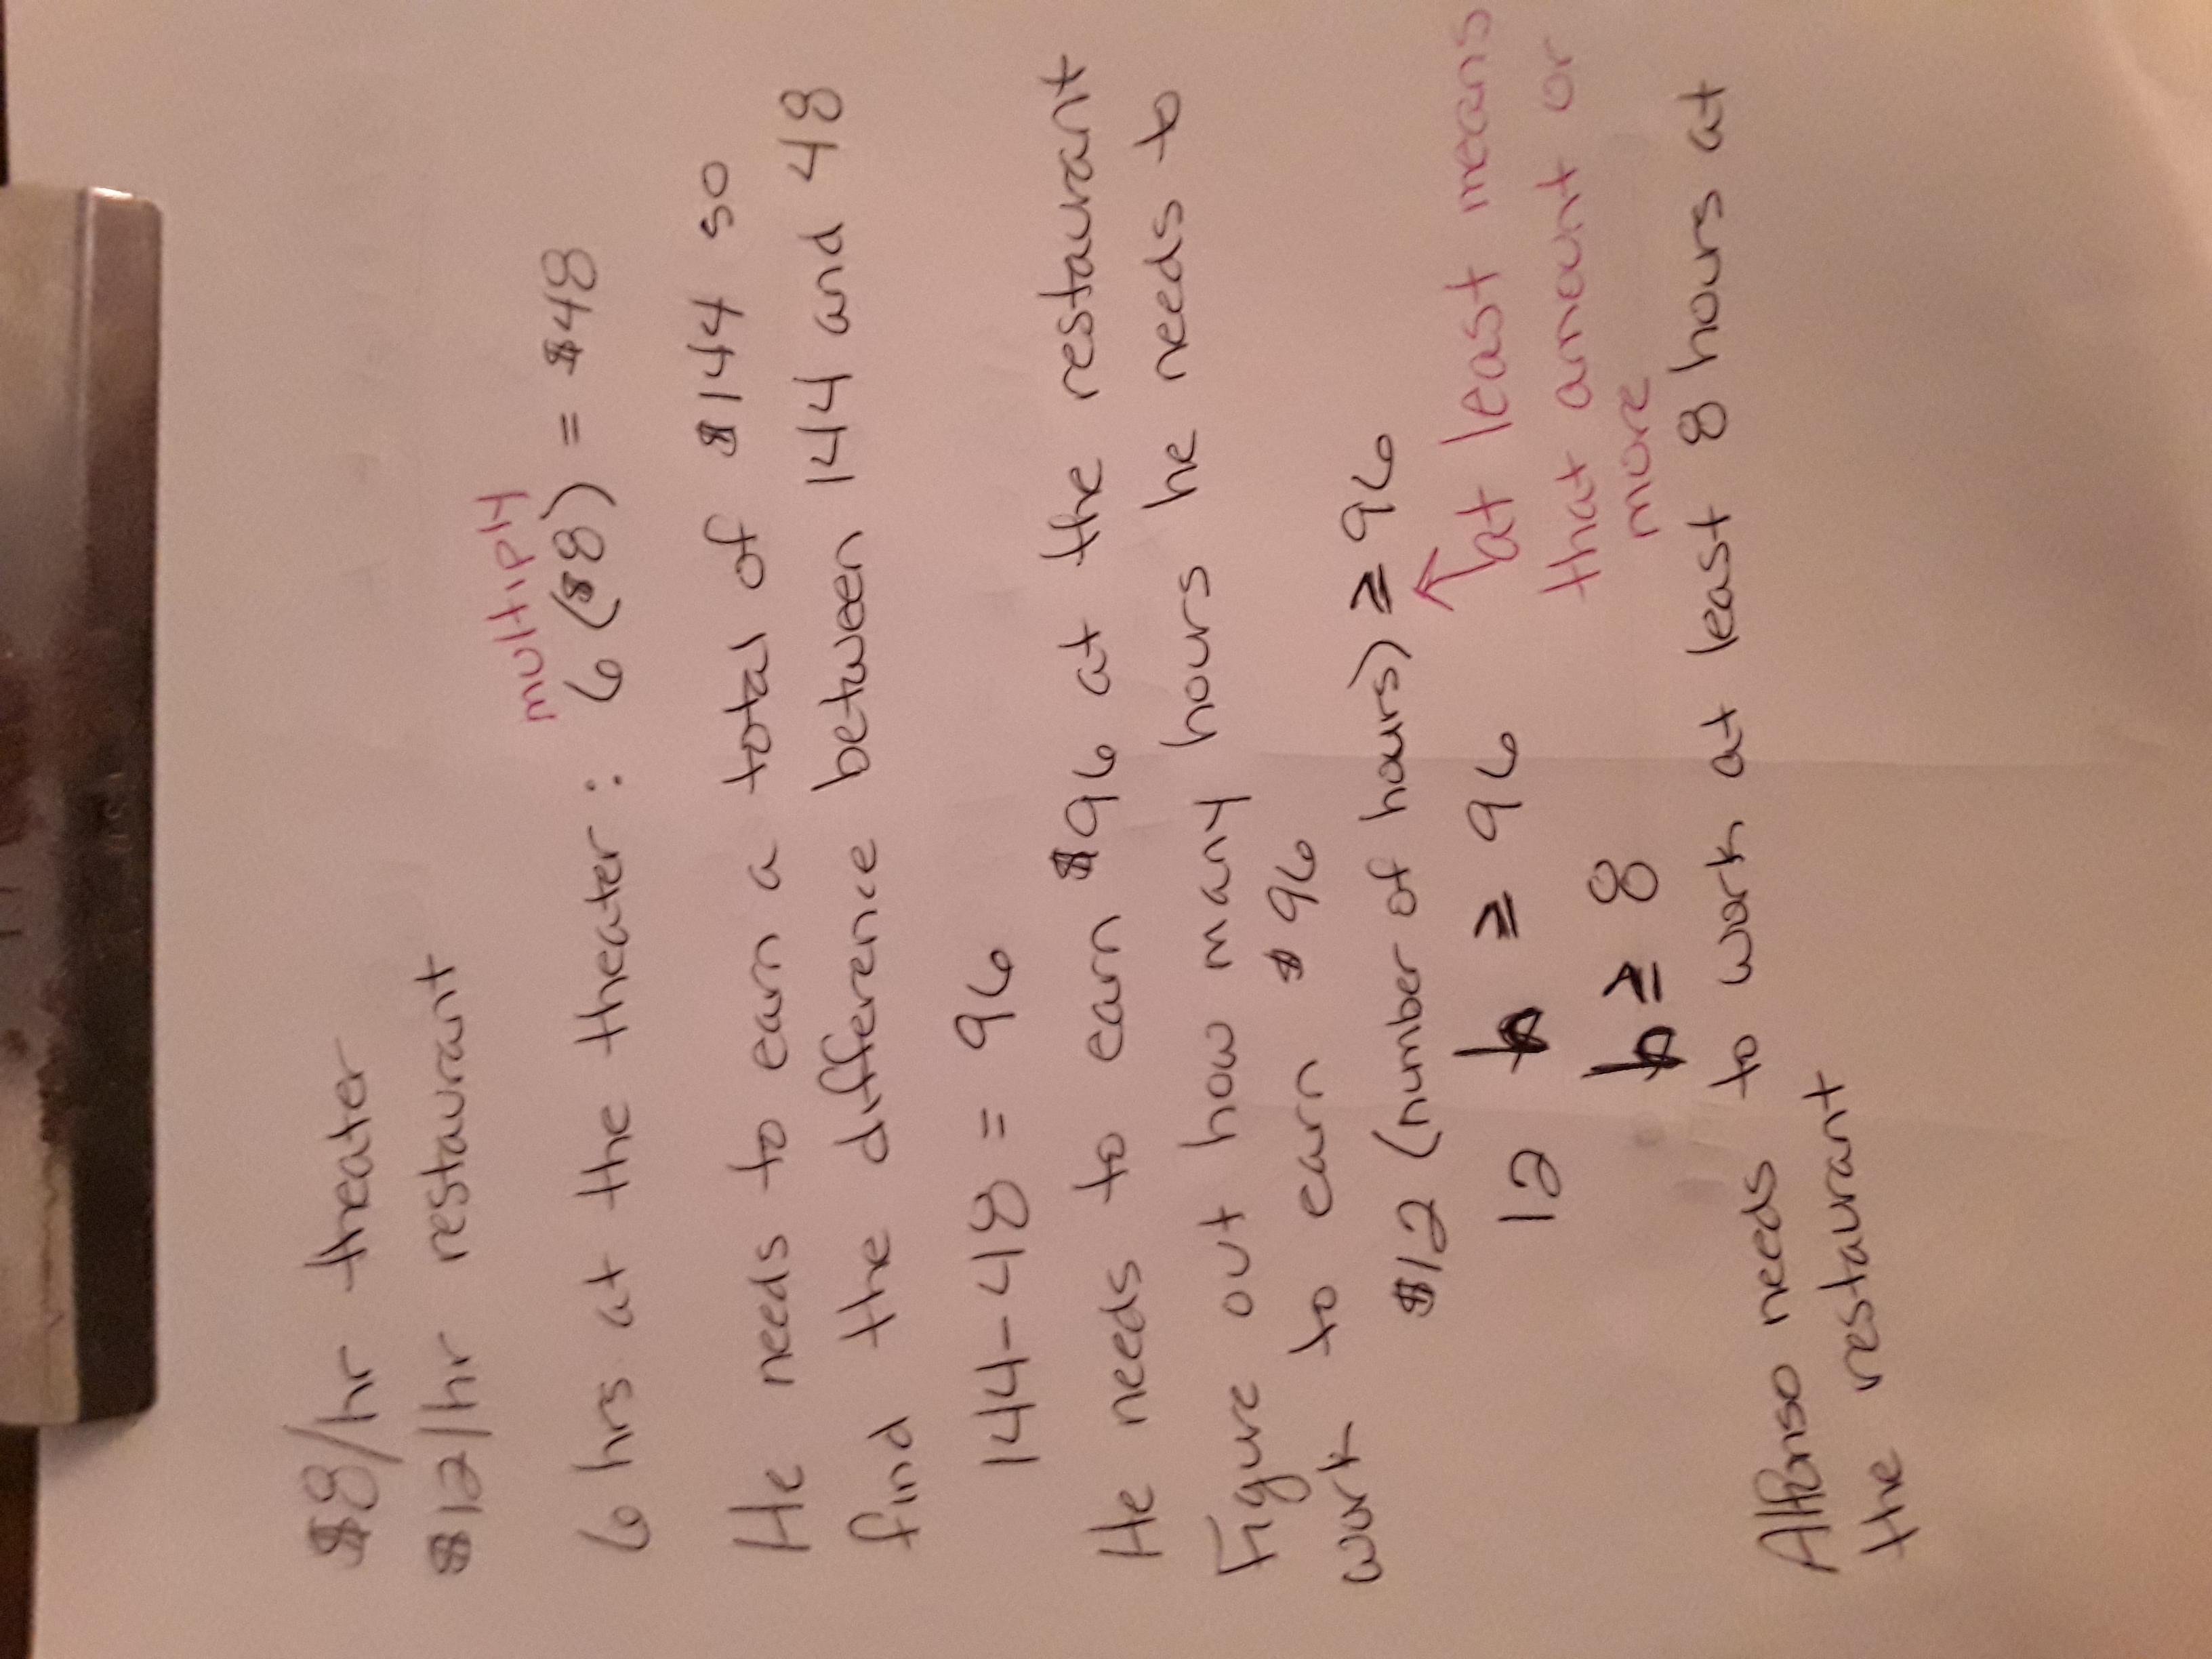 $8/hr theater
$12/hr restaurant
multiply
6 hrs at the theater : 6 ($8) = $48
He needs to earn a total of $144 so
find the difference between 144 and 48
144-48 = 96
He needs to earn $96 at the restaurant
Figure out how many hours he needs to
work to earn $96
$12 (number of hours) ≥ 96
at least means
that amount or
more
12 h ≥ 96
h ≥ 8
Alfonso needs to work at least 8 hours at
the restaurant